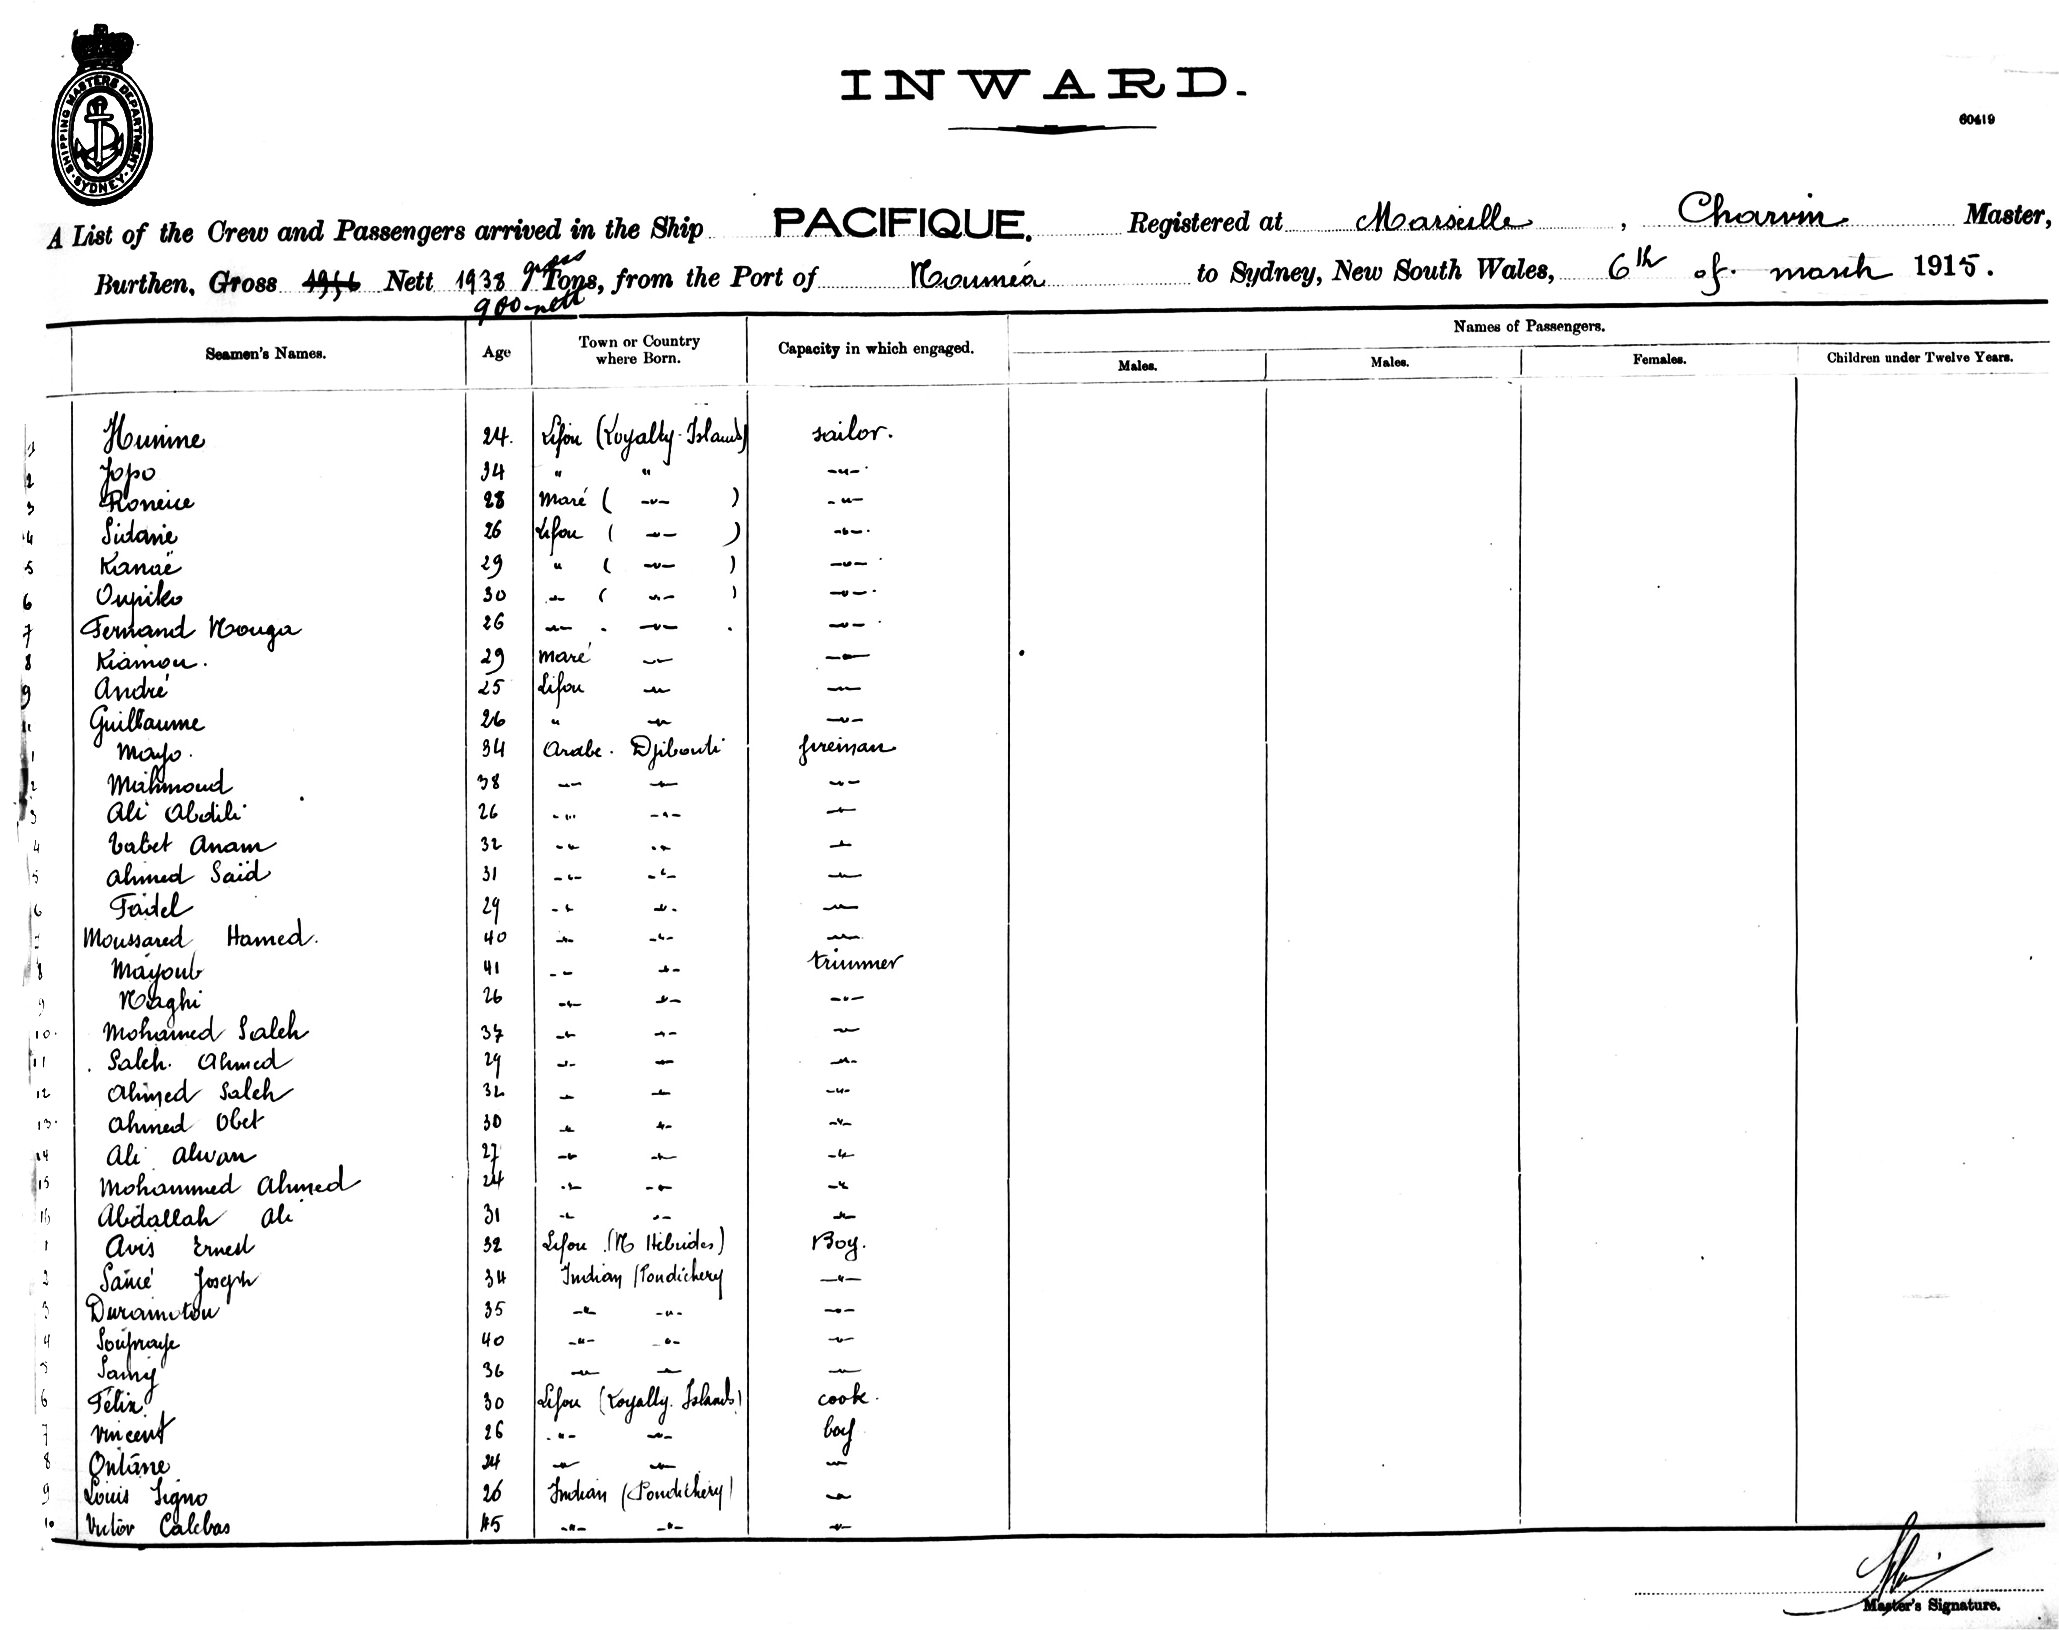 INWARD.
60419
SHIPPING MASTERS DEPARTMENT SYDNEY
A List of the Crew and Passengers arrived in the Ship PACIFIQUE. Registered at Marseille, Charvin Master,
Burthen, Gross 1956 Nett 1938 gross Tons, from the Port of Nouméa to Sydney, New South Wales, 6th of march 1915.
900 nett
Seamen's Names. Age Town or Country where Born. Capacity in which engaged. Names of Passengers.
Males. Males. Females. Children under Twelve Years.
1 Hunine 24. Lifou (Loyalty-Islands) sailor.
2 Jopo 34 " " -"-
3 Roneice 28 Maré ( -"- ) -"-
4 Sidarie 26 Lifou ( -"- ) -"-
5 Kanaë 29 " ( -"- ) -"-
6 Oupiko 30 -"- ( -"- ) -"-
7 Fernand Nouga 26 -"- -"- -"-
8 Kiamou. 29 Maré -"- -"-
9 André 25 Lifou -"- -"-
Guillaume 26 " -"- -"-
1 Mayo. 34 Arabe. Djibouti fireman
2 Mahmoud 38 -"- -"- -"-
3 Ali Abdili 26 -"- -"- -"-
4 Tabet Anam 32 -"- -"- -"-
5 Ahmed Saïd 31 -"- -"- -"-
6 Fadel 29 -"- -"- -"-
7 Moussared Hamed. 40 -"- -"- -"-
8 Mayoub 41 -"- -"- trimmer
9 Naghi 26 -"- -"- -"-
10. Mohamed Saleh 37 -"- -"- -"-
11 Saleh. Ahmed 29 -"- -"- -"-
12 Ahmed Saleh 32 -"- -"- -"-
13. Ahmed Obet 30 -"- -"- -"-
14 Ali Alwan 27 -"- -"- -"-
15 Mohammed Ahmed 24 -"- -"- -"-
16 Abdallah Ali 31 -"- -"- -"-
1 Avis Ernest 32 Lifou (N Hébrides) Boy.
2 Saïcé Joseph 34 Indian (Pondichery -"-
3 Duramotou 35 -"- -"- -"-
4 Soupraye 40 -"- -"- -"-
5 Samy 36 -"- -"- -"-
6 Félix 30 Lifou (Loyalty. Islands) cook.
7 Vincent 26 -"- -"- boy
8 Outâne 24 -"- -"- -"-
9 Louis Signo 26 Indian (Pondichéry) -"-
10 Victor Calebas 45 -"- -"- -"-
Master's Signature.